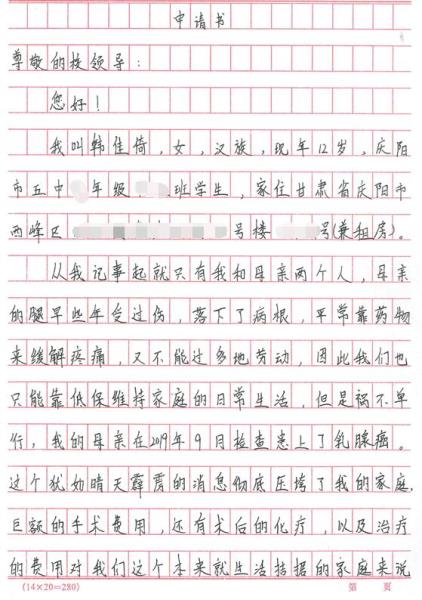 申请书
尊敬的校领导：
您好！
我叫韩佳倚，女，汉族，现年12岁，庆阳
市五中 年级 班学生，家住甘肃省庆阳市
西峰区 号楼 号(兼租房)。
从我记事起就只有我和母亲两个人，母亲
的腿早些年受过伤，落下了病根，平常靠药物
来缓解疼痛，又不能过多地劳动，因此我们也
只能靠低保维持家庭的日常生活，但是祸不单
行，我的母亲在2019年9月检查患上了乳腺癌。
这个犹如晴天霹雳的消息彻底压垮了我的家庭，
巨额的手术费用，还有术后的化疗，以及治疗
的费用对我们这个本来就生活拮据的家庭来说
(14×20=280) 第 页